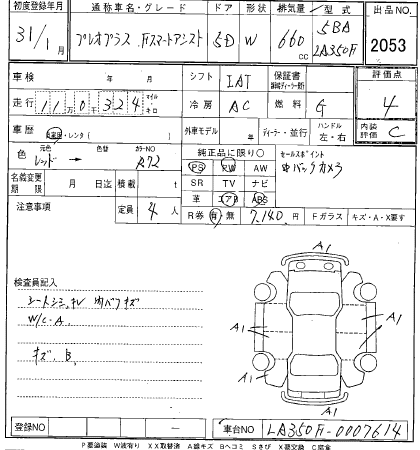 初度登録年月 通称車名・グレード ドア 形状 排気量 型式 出品NO.
31/1月 プレオプラス Fスマートアシスト 5D W 660cc 5BA LA350F 2053
車検 年 月 シフト IAT 保証書 評価点
走行 110,324 マイル キロ 冷房 AC 燃料 G 4
車歴 自家用・レンタ( ) 外車モデル 年 ディーラー・並行 ハンドル 左・右 内装評価 C
色 元色 レッド → 色替 カラーNO R72 純正品に限り○ セールスポイント
名義変更期限 月 日迄 積載 t PS PW AW バックカメラ
SR TV ナビ
注意事項 定員 4人 革 エアB ABS
R券 有・無 7,140円 Fガラス キズ・A・X要す
検査員記入
シートシミ、キレ 内バフキズ
W/C-A
キズ、B
A1
A1 A1
A1 A1
A1
登録NO - 車台NO LA350F-0007614
P要塗装 W波有り XX取替済 A線キズ Bヘコミ Sさび X要交換 C腐食